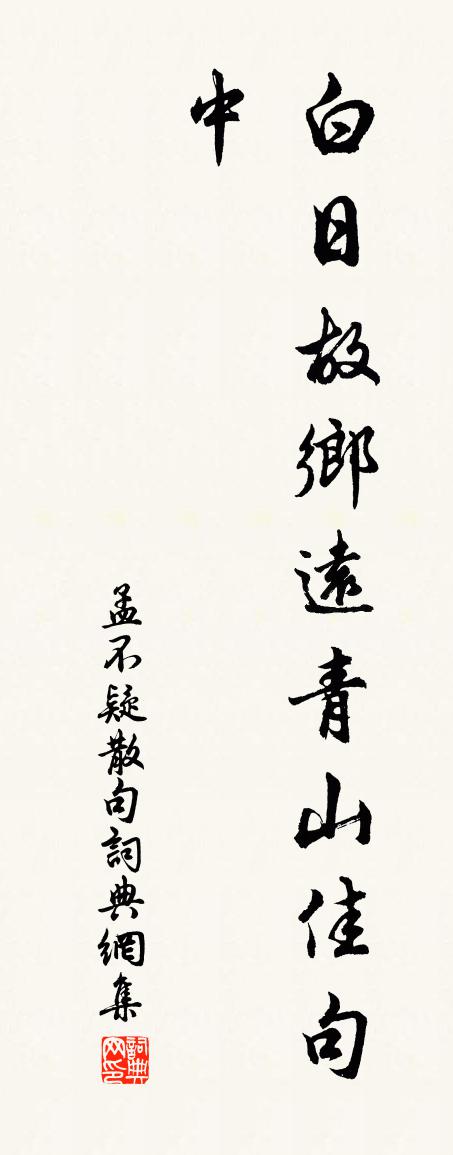 白日故鄉遠青山佳句
中
孟不疑散句詞典網集
詞典网印